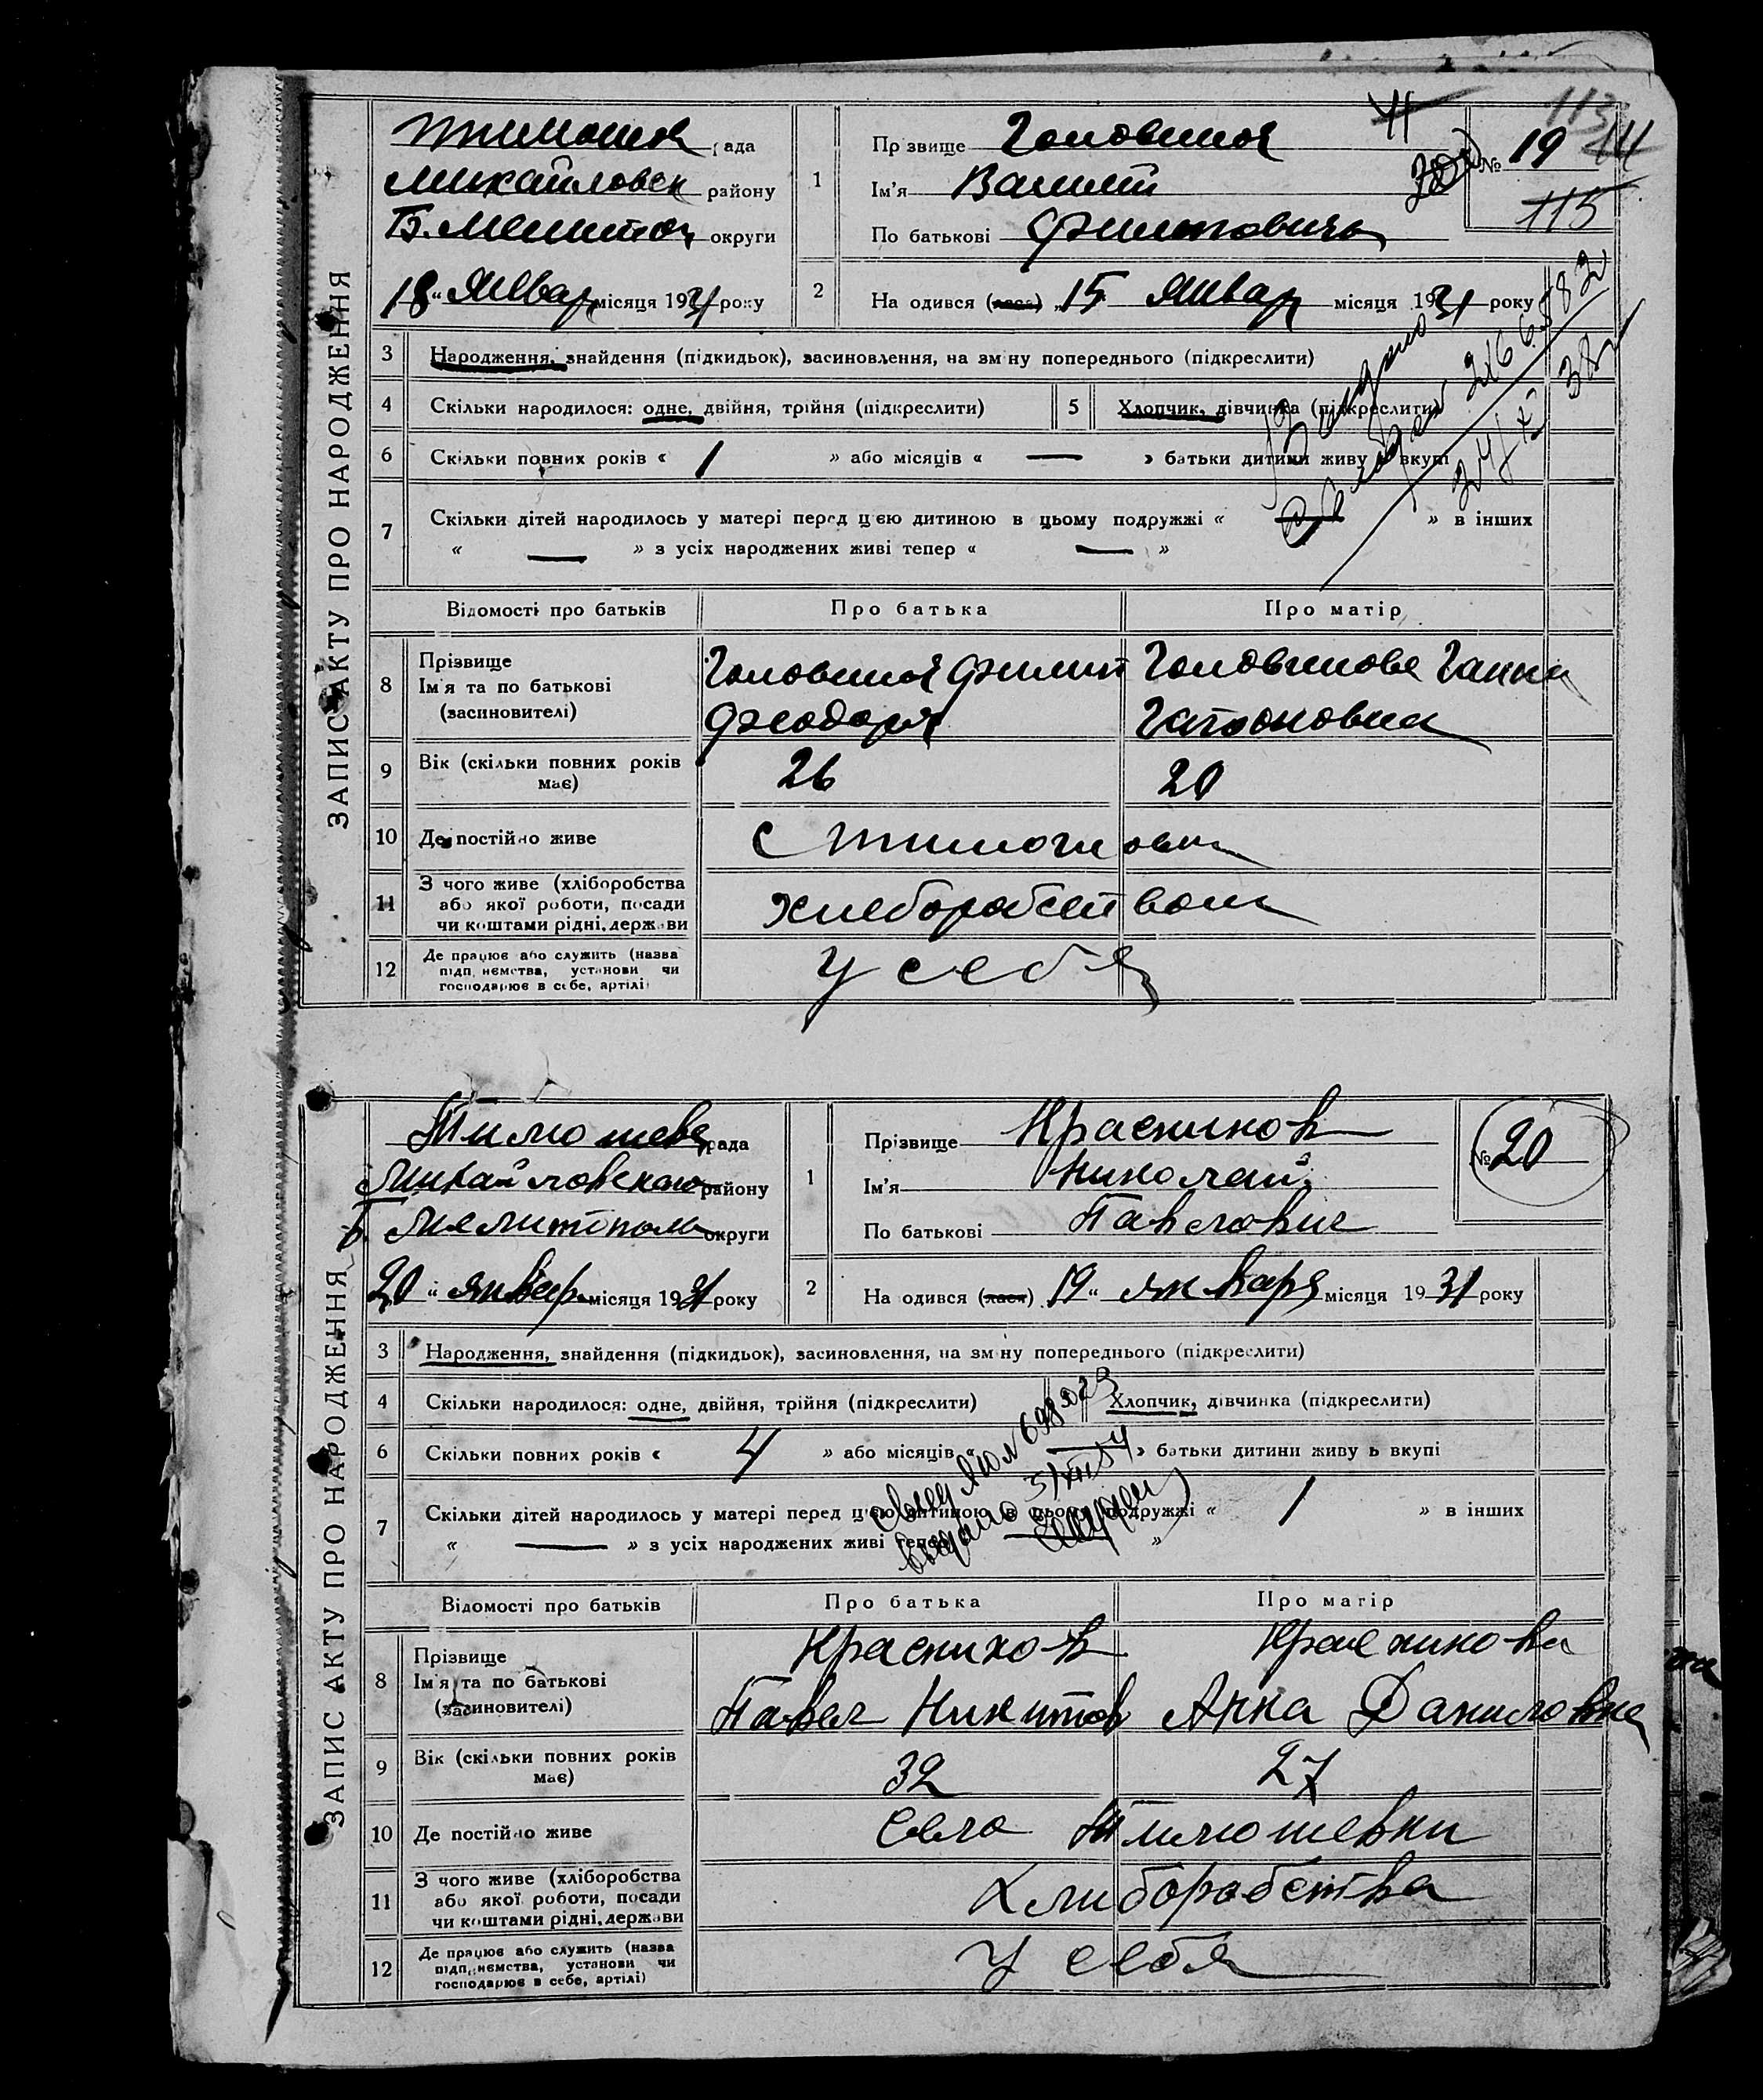 ЗАПИС АКТУ ПРО НАРОДЖЕННЯ
Тимошев рада
Михайловск району
Б. Мелитоп округи
18 " Январ місяця 1931 року
1
Прізвище Головинов
Ім'я
По батькові Филиповичь
№ 19
113
115
2
На одився (лася) „15 Январ місяця 1931 року
3 Народження, знайдення (підкидьок), засиновлення, на зміну попереднього (підкреслити)
4 Скільки народилося: одне, двійня, трійня (підкреслити)
5 Хлопчик, дівчинка (підкреслити)
6 Скільки повних років « 1 » або місяців « — » батьки дитини живуть вкупі
7 Скільки дітей народилось у матері перед цією дитиною в цьому подружжі « — » в інших
« — » з усіх народжених живі тепер « — »
Відомості про батьків
Про батька
Про матір
8 Прізвище
Ім'я та по батькові
(засиновителі)
Филип
Феодоров
Ганна
9 Вік (скільки повних років має)
26
20
10 Де постійно живе
с Тимошовки
11 З чого живе (хліборобства
або якої роботи, посади
чи коштами рідні, держави
хлеборобством
12 Де працює або служить (назва
підприємства, установи чи
господарює в себе, артілі)
у себя
ЗАПИС АКТУ ПРО НАРОДЖЕННЯ
Тимошевс рада
Михайловского району
Б. Мелитополь округи
20 " январ місяця 1931 року
1
Прізвище Краснихов
Ім'я Николай
По батькові Павлович
№ 20
2
На одився (лася) „19" января місяця 1931 року
3 Народження, знайдення (підкидьок), засиновлення, на зміну попереднього (підкреслити)
4 Скільки народилося: одне, двійня, трійня (підкреслити)
Хлопчик, дівчинка (підкреслити)
6 Скільки повних років « 4 » або місяців « — » батьки дитини живуть вкупі
7 Скільки дітей народилось у матері перед цією дитиною в цьому подружжі « 1 » в інших
« — » з усіх народжених живі тепер « — »
Відомості про батьків
Про батька
Про матір
8 Прізвище
Ім'я та по батькові
(засиновителі)
Краснихов
Краснихова
Павел Никитов
Анна Даниловна
9 Вік (скільки повних років має)
32
27
10 Де постійно живе
Село Тимошевки
11 З чого живе (хліборобства
або якої роботи, посади
чи коштами рідні, держави
Хлиборобства
12 Де працює або служить (назва
підприємства, установи чи
господарює в себе, артілі)
у себя